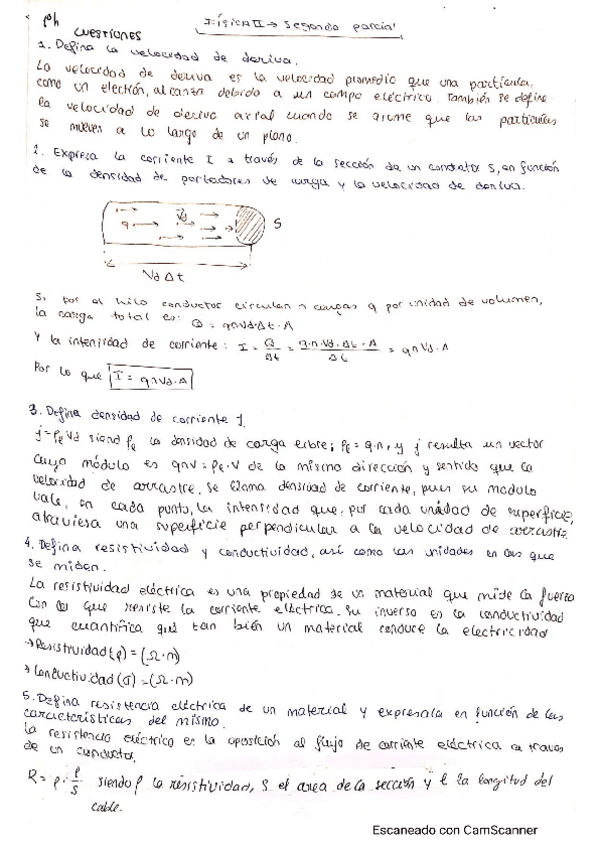 ph
CUESTIONES
FÍSICA II → Segundo parcial
1. Defina la velocidad de deriva.
La velocidad de deriva es la velocidad promedio que una partícula,
como un electrón, alcanza debido a un campo eléctrico. También se define
la velocidad de deriva axial cuando se asume que las partículas
se mueven a lo largo de un plano.
2. Expresa la corriente I a través de la sección de un conductor S, en función
de la densidad de portadores de carga y la velocidad de deriva.
q Vd S
Vd Δt
Si por el hilo conductor circulan n cargas q por unidad de volumen,
la carga total es: Q = qnVd·Δt·A
Y la intensidad de corriente: I = Q/Δt = q·n·Vd·Δt·A/Δt = qnVd·A
Por lo que I = qnVd·A
3. Defina densidad de corriente J.
j = ρe Vd siend ρe la densidad de carga libre; ρe = q·n, y j resulta un vector
cuyo módulo es qnv = ρe·v de la mismo dirección y sentido que la
velocidad de arrastre. Se llama densidad de corriente, pues su modulo
vale, en cada punto, la intensidad que, por cada unidad de superficie,
atraviesa una superficie perpendicular a la velocidad de arrastre.
4. Defina resistividad y conductividad, así como las unidades en las que
se miden.
La resistividad eléctrica es una propiedad de un material que mide la fuerza
con la que resiste la corriente eléctrica. Su inverso es la conductividad
que cuantifica qué tan bién un material conduce la electricidad
→ Resistividad (ρ) = (Ω·m)
→ Conductividad (σ) = (Ω·m)
5. Defina resistencia eléctrica de un material y expresala en función de las
características del mismo.
la resistencia eléctrica es la oposición al flujo de corriente eléctrica a traves
de un conductor.
R = ρ · l/S siendo ρ la resistividad, S el area de la sección y l la longitud del
cable.
Escaneado con CamScanner